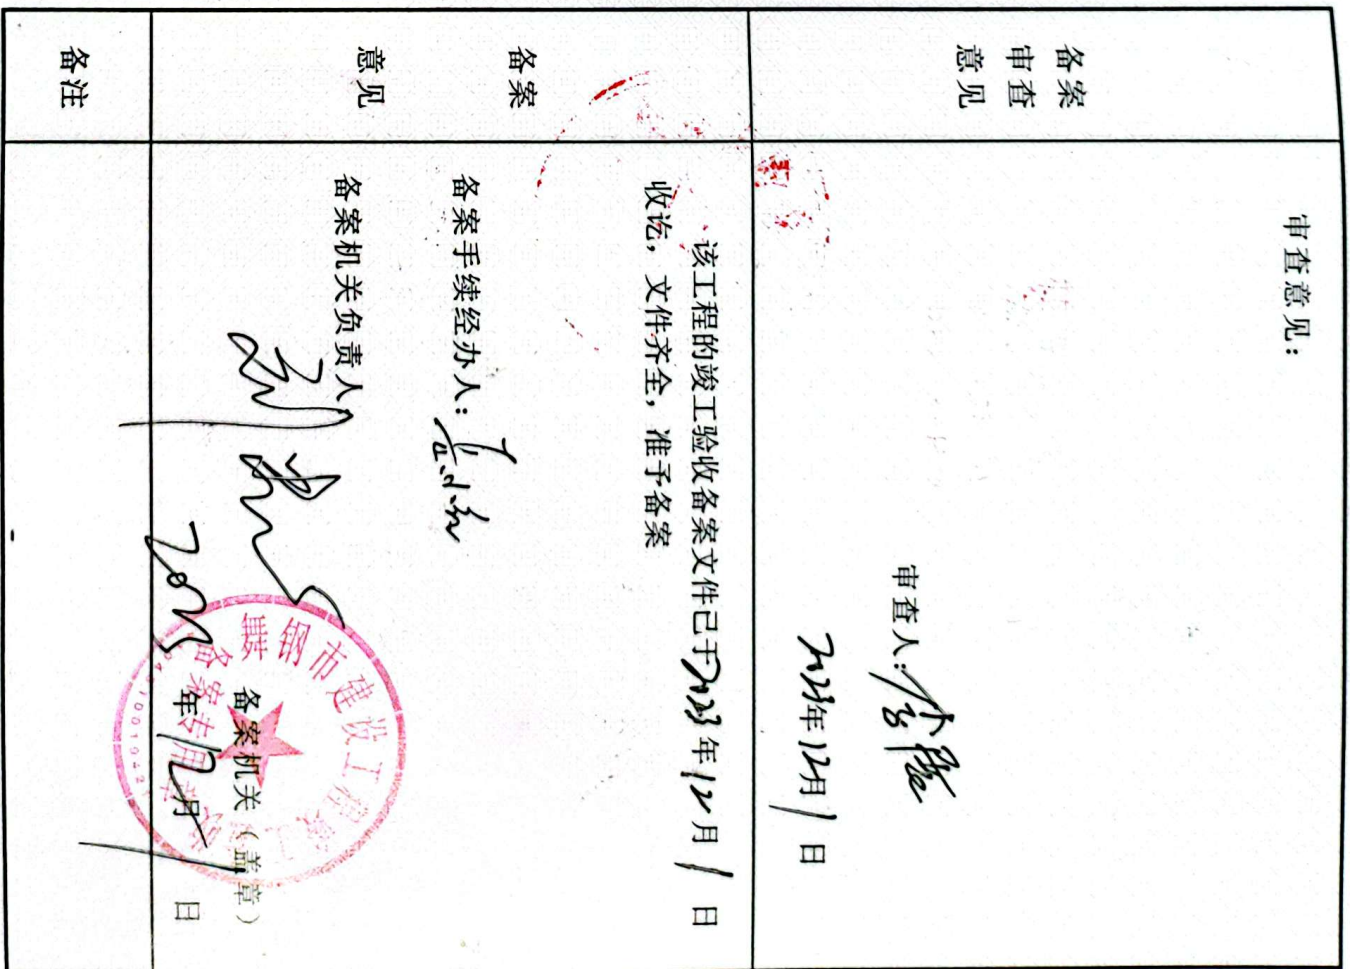 备案
审查
意见
审查意见：
审查人：
2023年12月1日
备案
意见
该工程的竣工验收备案文件已于2023年12月1日
收讫，文件齐全，准予备案
备案手续经办人：
备案机关负责人
备案机关（盖章）
2023年12月1日
舞钢市建设工程竣工验收
备案专用章
备注